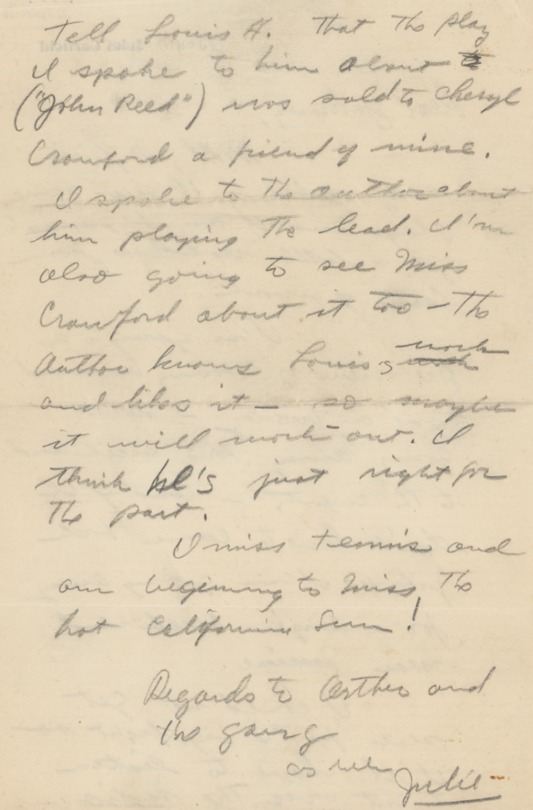 Tell Louis H. That the play
I spoke to him about
("John Reed") was sold to Cheryl
Crawford a friend of mine.
I spoke to the author about
him playing the lead. I'm
also going to see Miss
Crawford about it too - The
Author knows Louis's work
and likes it - so maybe
it will work out. I
think he's just right for
the part.
I miss tennis and
am begining to miss the
hot California Sun!
Regards to Arthur and
the gang
as ever
Julie